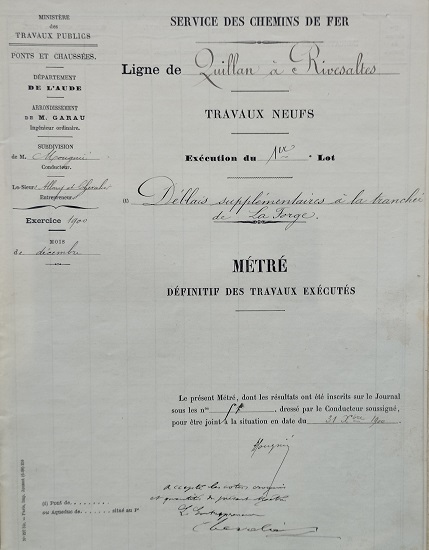 MINISTÈRE
des
TRAVAUX PUBLICS
PONTS ET CHAUSSÉES.
DÉPARTEMENT
DE L'AUDE
ARRONDISSEMENT
DE M. GARAU
Ingénieur ordinaire.
SUBDIVISION
de M. Mouguié
Conducteur.
Le Sieur
Entrepreneur
Exercice 1900
MOIS
de décembre
SERVICE DES CHEMINS DE FER
Ligne de Quillan à Rivesaltes
TRAVAUX NEUFS
Exécution du 1er Lot
(1) Déblais supplémentaires à la tranchée
de La Forge.
MÉTRÉ
DÉFINITIF DES TRAVAUX EXÉCUTÉS
Le présent Métré, dont les résultats ont été inscrits sur le Journal
sous les nos dressé par le Conducteur soussigné,
pour être joint à la situation en date du 31 Xbre 1900
accepté les
et quantités du présent métré
L'Entrepreneur
(1) Pont de
ou aqueduc de situé au Pt